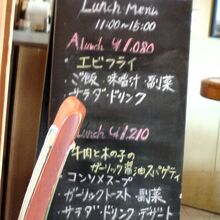 Lunch Menu
11:00~15:00
A lunch ¥1,080
・エビフライ
・ご飯・味噌汁・副菜
・サラダ・ドリンク
Lunch ¥1,210
牛肉と木の子の
ガーリック醤油スパゲティ
コンソメスープ
・ガーリックトースト・副菜
・サラダ・ドリンク デザート